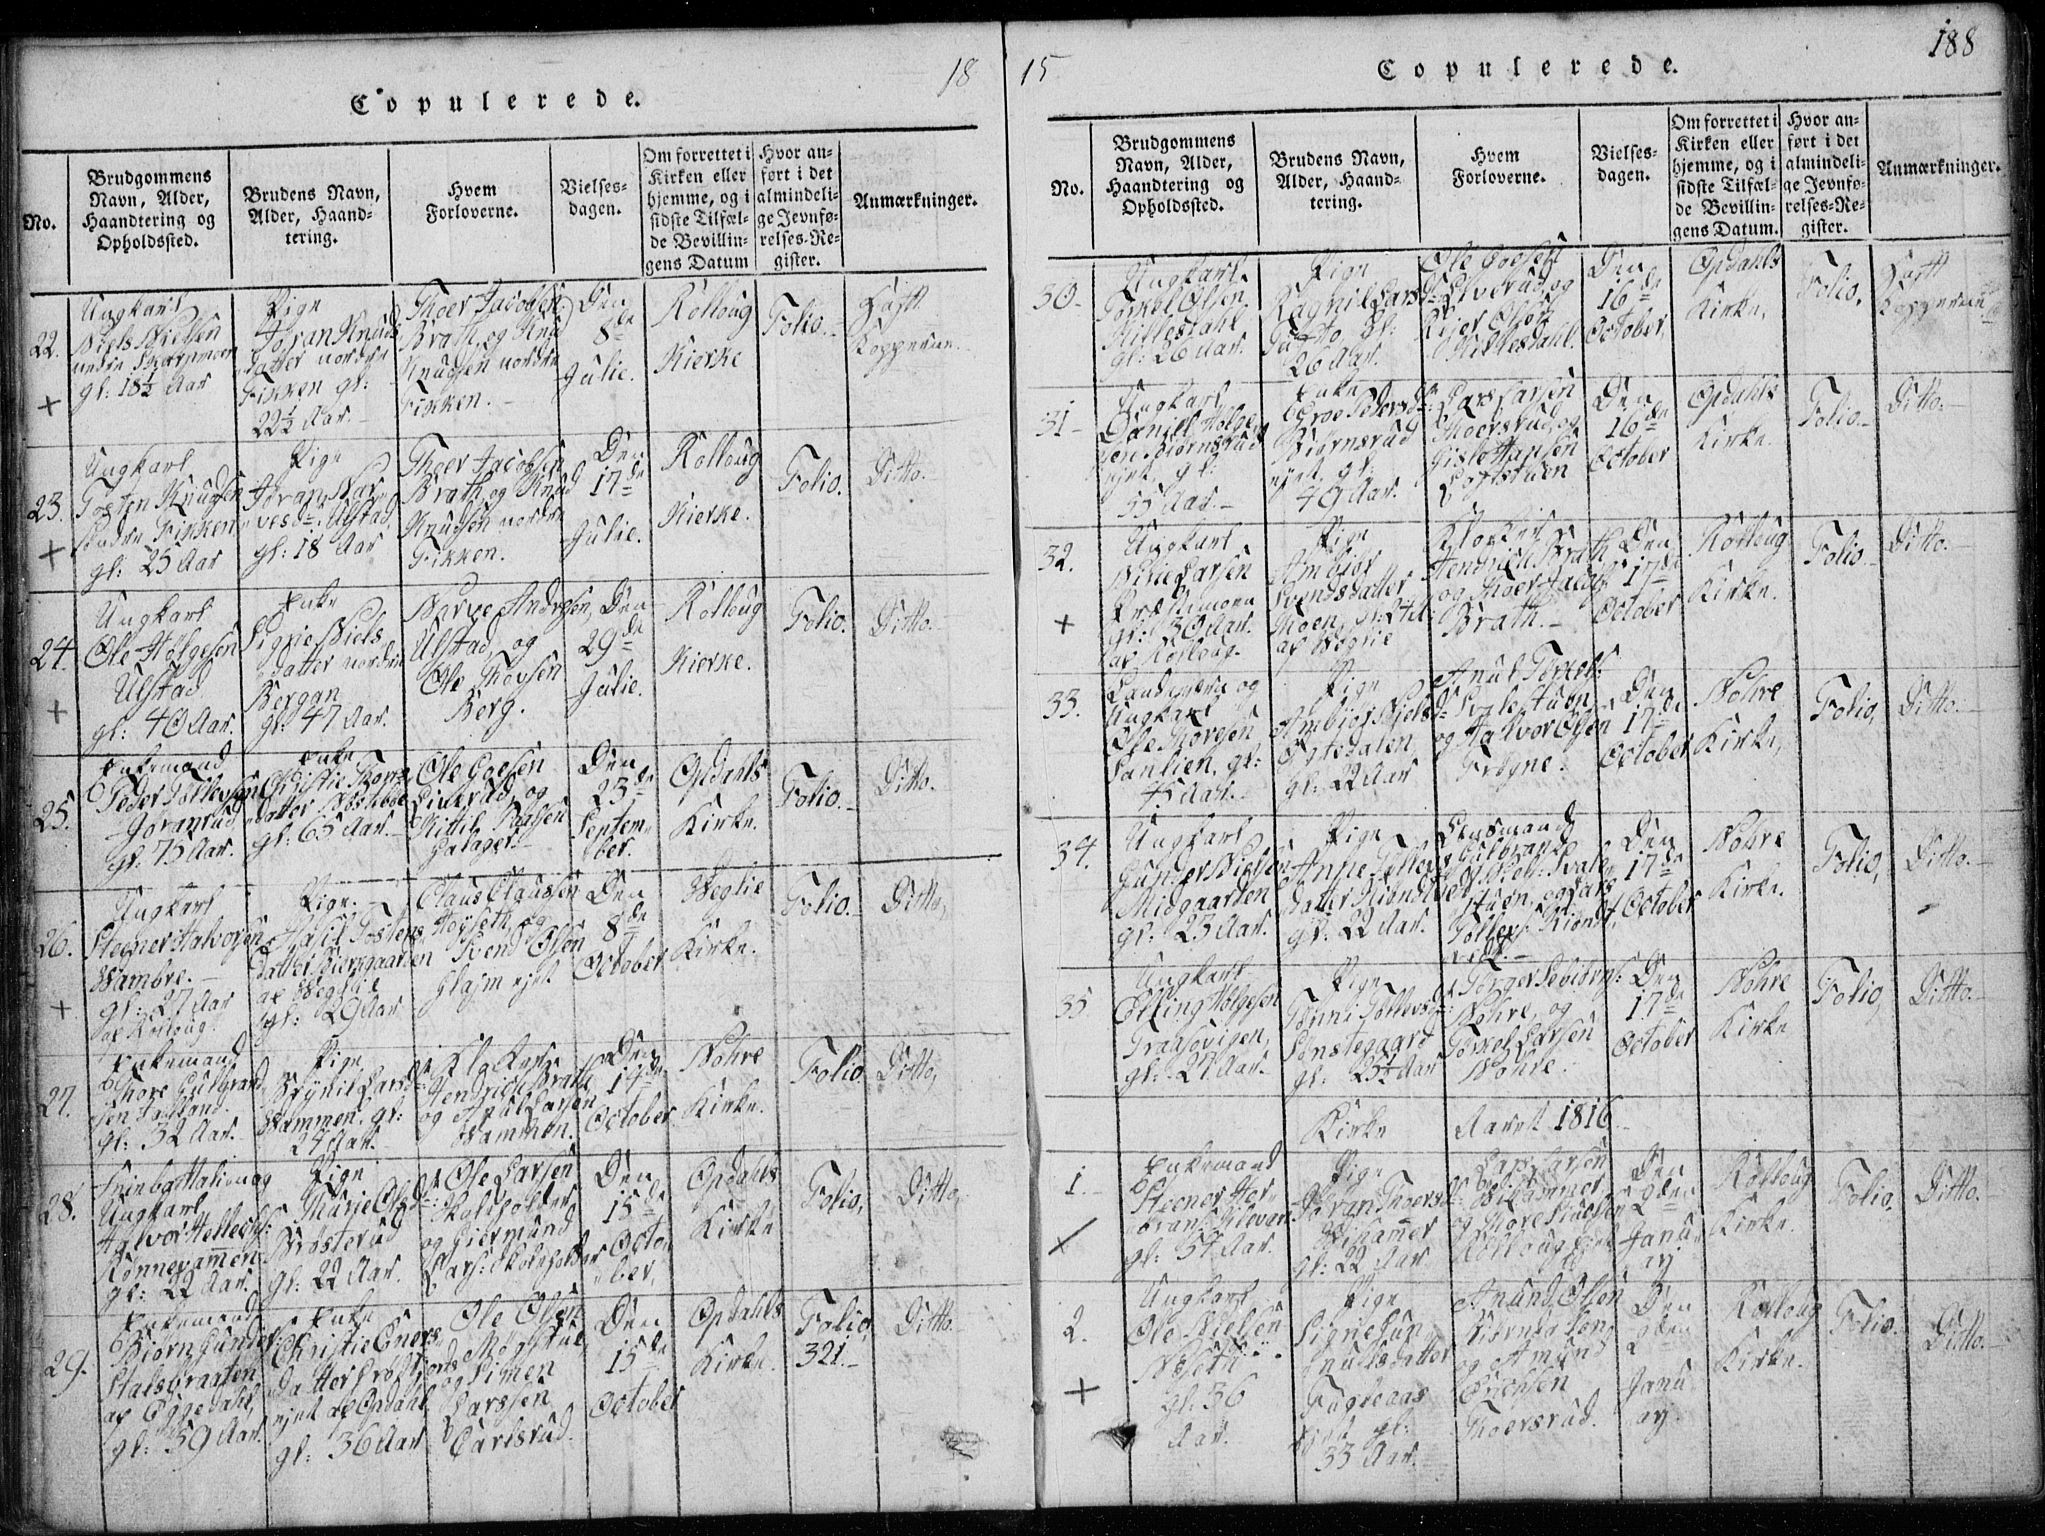 18
Copulerede.
No.
Brudgommens
Navn, Alder,
Haandtering og
Opholdssted.
Brudens Navn,
Alder, Haand-
tering.
Hvem
Forloverne.
Vielses-
dagen.
Om forrettet i
Kirken eller
hjemme, og i
sidste Tilfæl-
de Bevillin-
gens Datum
Hvor an-
ført i det
almindeli-
ge Jevnfø-
relses-Re-
gister.
Anmærkninger.
22.
+
Ungkarl
Niels Nielsen
gl: 18½ Aar
Pige
Joran Knuds
datter nordre
Fikken gl:
22½ Aar.
Thoer Jacobsen
Brath, og Knud
Knudsen nordre
Fikken.
Den
8de
Julie.
Rolloug
Kierke
Folio.
Kopperne.
23.
+
Ungkarl
Tosten Knudsen
søndre Fikken
gl: 25 Aar
Pige
Joran Nar-
vesdr: Ulstad,
gl: 18 Aar
Thoer Jacobsen
Brath, og Knud
Knudsen nordre
Fikken.
Den
17de
Julie.
Rolloug
Kierke.
Folio.
Ditto.
24.
+
Ungkarl
Ole Helgesen
Ulstad
gl: 40 Aar.
Enke
Sigrie Niels
datter nordre
Bergan
gl: 47 Aar.
Narve Andersen,
Ulstad, og
Ole
Berg.
Den
29de
Julie.
Rolloug
Kierke.
Folio.
Ditto.
25.
Enkemand
Peder Tollevsen
Joranrud
gl: 75 Aar.
Enke
Christie
datter
gl: 65 Aar.
Ole Goesen
Liverud, og
Kittil
Den
23de
Septem-
ber.
Opdahls
Kirke.
Folio.
Ditto.
26.
+
Ungkarl
Steener Halvorsen
Wambre.
gl: 27 Aar
af Rolloug.
Pige.
Tostens
datter Kierkgaarden
af Weglie
gl: 29 Aar
Claus Claussen
Høyseth, og
Svend Olsen
Den
8de
October
Weglie
Kirke.
Folio.
Ditto,
27.
Enkemand
Thore Gulbrand
sen
gl: 32 Aar.
Pige
Lars
gl:
24 Aar.
Klokker
Hendrich Brath
og Larsen
Den
14de
October
Nohre
Kirke.
Folio
Ditto,
28.
Ungkarl
Halvor
Rønnevammen
gl: 22 Aar.
Pige
Marje Olsdr:
Brøsterud
gl: 22 Aar.
Ole Larsen
Skoleholder
og Giermund
Lars: Skoleholder
Den
15de
Octo-
ber,
Opdahls
Kirke
Folio,
Ditto,
29.
Enkemand
Biørn Gunder
Halsbraaten
af Eggedahl,
gl: 59 Aar.
Enke
Christie
datter
ejet af Opdahl
gl: 36 Aar
Ole Olsen
og Simen
Larssen
Carlsrud.
Den
15de
October
Opdahls
Kirke.
Folio,
321.
Ditto.
15
188
Copulerede.
No.
Brudgommens
Navn, Alder,
Haandtering og
Opholdssted.
Brudens Navn,
Alder, Haand-
tering.
Hvem
Forloverne.
Vielses-
dagen.
Om forrettet i
Kirken eller
hjemme, og i
sidste Tilfæl-
de Bevillin-
gens Datum.
Hvor an-
ført i det
almindeli-
ge Jevnfø-
relses-Re-
gister.
Anmærkninger.
30.
Ungkarl
Torkel Olsen
Killesdahl
gl: 26 Aar.
Pige
Ragnil Larsdr:
gl:
26 Aar.
Ole Goesen
Liverud, og
Olsen
Killesdahl.
Den
16de
October,
Opdahls
Kirke,
Folio.
Kopperne
31
Ungkarl
Daniel Helge-
sen Biørnsrud
ejet gl:
55 Aar.
Enke
Pedersdr:
Biørnsrud
ejet gl:
40 Aar.
Lars Larsen
Thoersrud, og
Gisle Hansen
Loftstuen
Den
16de
October
Opdahls
Kirke.
Folio.
Ditto.
32.
+
Ungkarl
Larsen
gl: 30 Aar.
af Rolloug.
Pige
Ambior
Svendsdatter
Moen,
af Weglie
Klokker
Hendrich Brath
og Thoer Jacobs:
Brath.
Den
17de
October
Rolloug
Kirke.
Folio.
Ditto.
33.
og
Ungkarl
Ole Thoresen
Sanlien, gl:
45 Aar.
Pige
Ambior Nielsdr:
gl: 22 Aar
og Halvor Olsen
Frøgne.
Den
17de
October
Nohre
Kirke,
Folio,
Ditto.
34.
Ungkarl
Gunder Nielsen
Midgaarden
gl: 25 Aar.
Pige
Anne Tollevs
datter
gl: 22 Aar.
Lensmand
Gulbrand
stuen, og Lars
Tollevs:
Den
17de
October
Nohre
Kirke.
Folio,
Ditto.
35
Ungkarl
Elling Helgesen
gl: 27 Aar.
Pige
Tønni Tollevsdr:
Sønstegaard
gl: 25½ Aar
Torger
Nohre, og
Torkel Larsen
Nohre.
Den
17de
October
Nohre
Kirke
Folio,
Ditto.
Kirke Aaret 1816
1.
+
Enkemand
Steener Her-
brans:
gl: 54 Aar.
Pige
Joran Thoersdr:
gl: 22 Aar.
Lars Larsen
og Thore
Rolloug
Den
2den
Janu-
arj
Rolloug
Kirke.
Folio,
Ditto.
2.
+
Ungkarl
Ole Nielsen
gl: 36
Aar.
Pige
Sigrie
Knudsdatter
Fugleaas
ejet gl:
33 Aar.
Amund Olsen
og Amund
Erichsen
Thoersrud.
Den
2den
Janu-
arj.
Rolloug
Kirke.
Folio.
Ditto.